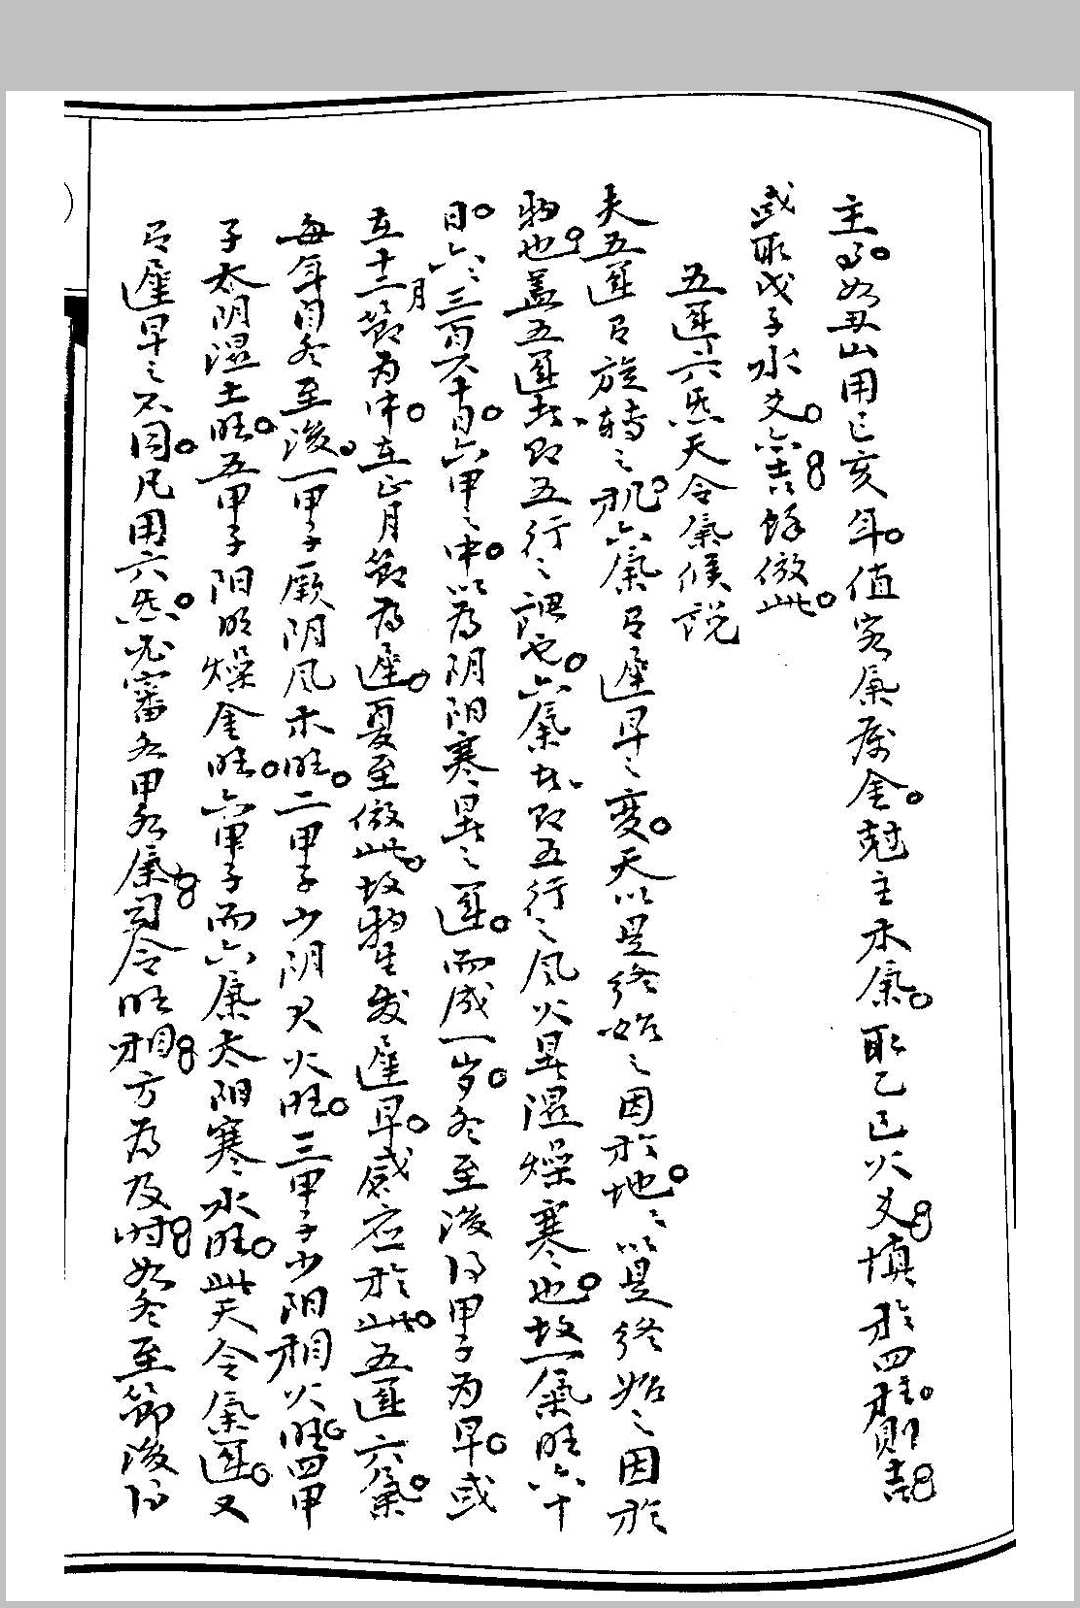 主。如丑山用己亥年。值客氣屬金。尅主木氣。取乙巳火爻。填於四柱。則吉。
或取戊子水爻。亦吉。餘倣此。
五運六炁天令氣候説
夫五運㠯旋轉之机。六氣㠯遲早之変。天以是終始之因於地。〻以是終始之因於
物也。盖五運者即五行之謂也。六氣者即五行之风火暑濕燥寒也。故一氣旺六十
日。六〻三百六十日。六甲之中。以為阴阳寒暑之運。而成一岁。冬至後得甲子为早。或
在十二月節为中。在正月節為遲。夏至倣此。故物生发遲早。感应於此。五運六氣。
每年自冬至後。一甲子厥阴风木旺。二甲子少阴君火旺。三甲子少阳相火旺。四甲
子太阴濕土旺。五甲子阳明燥金旺。六甲子而六氣太阳寒水旺。此天令氣運。又
㠯遲早之不同。凡用六炁。必審各甲各氣。司令旺相。方為及时。如冬至節後得